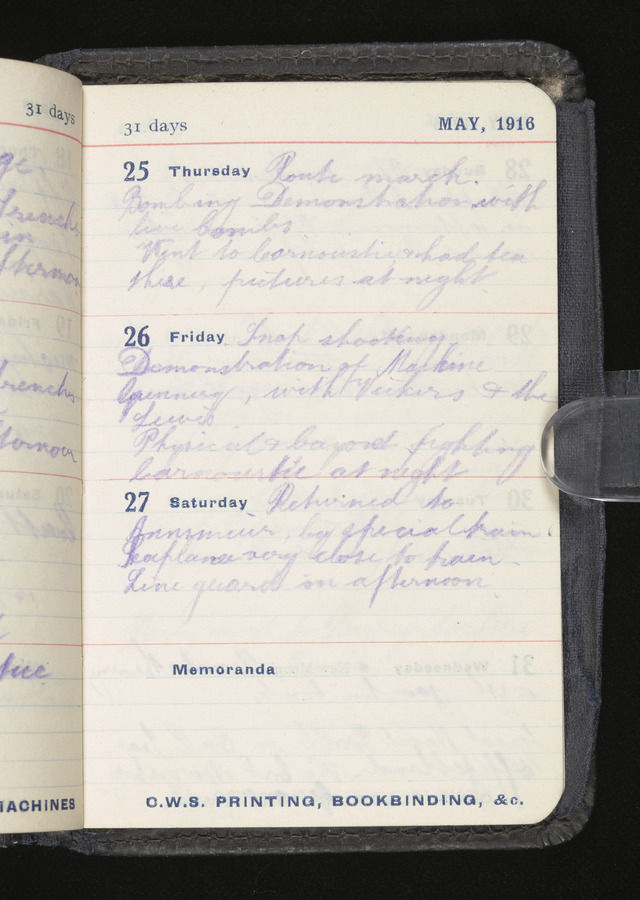 31 days
ge
trenche
in
afternoon
trenches
afternoon
fice
MACHINES
31 days MAY, 1916
25 Thursday Route march.
Bombing Demonstration with
live bombs.
Went to Carnoustie & had tea
there, pictures at night.
26 Friday Snap shooting
Demonstration of Machine
Gunnery, with Vickers & the
Lewis
Physical & bayond fighting
Carnoustie at night
27 Saturday Returned to
by special train.
Seaplane very close to train.
Line guard in afternoon
Memoranda
C.W.S. PRINTING, BOOKBINDING, &c.